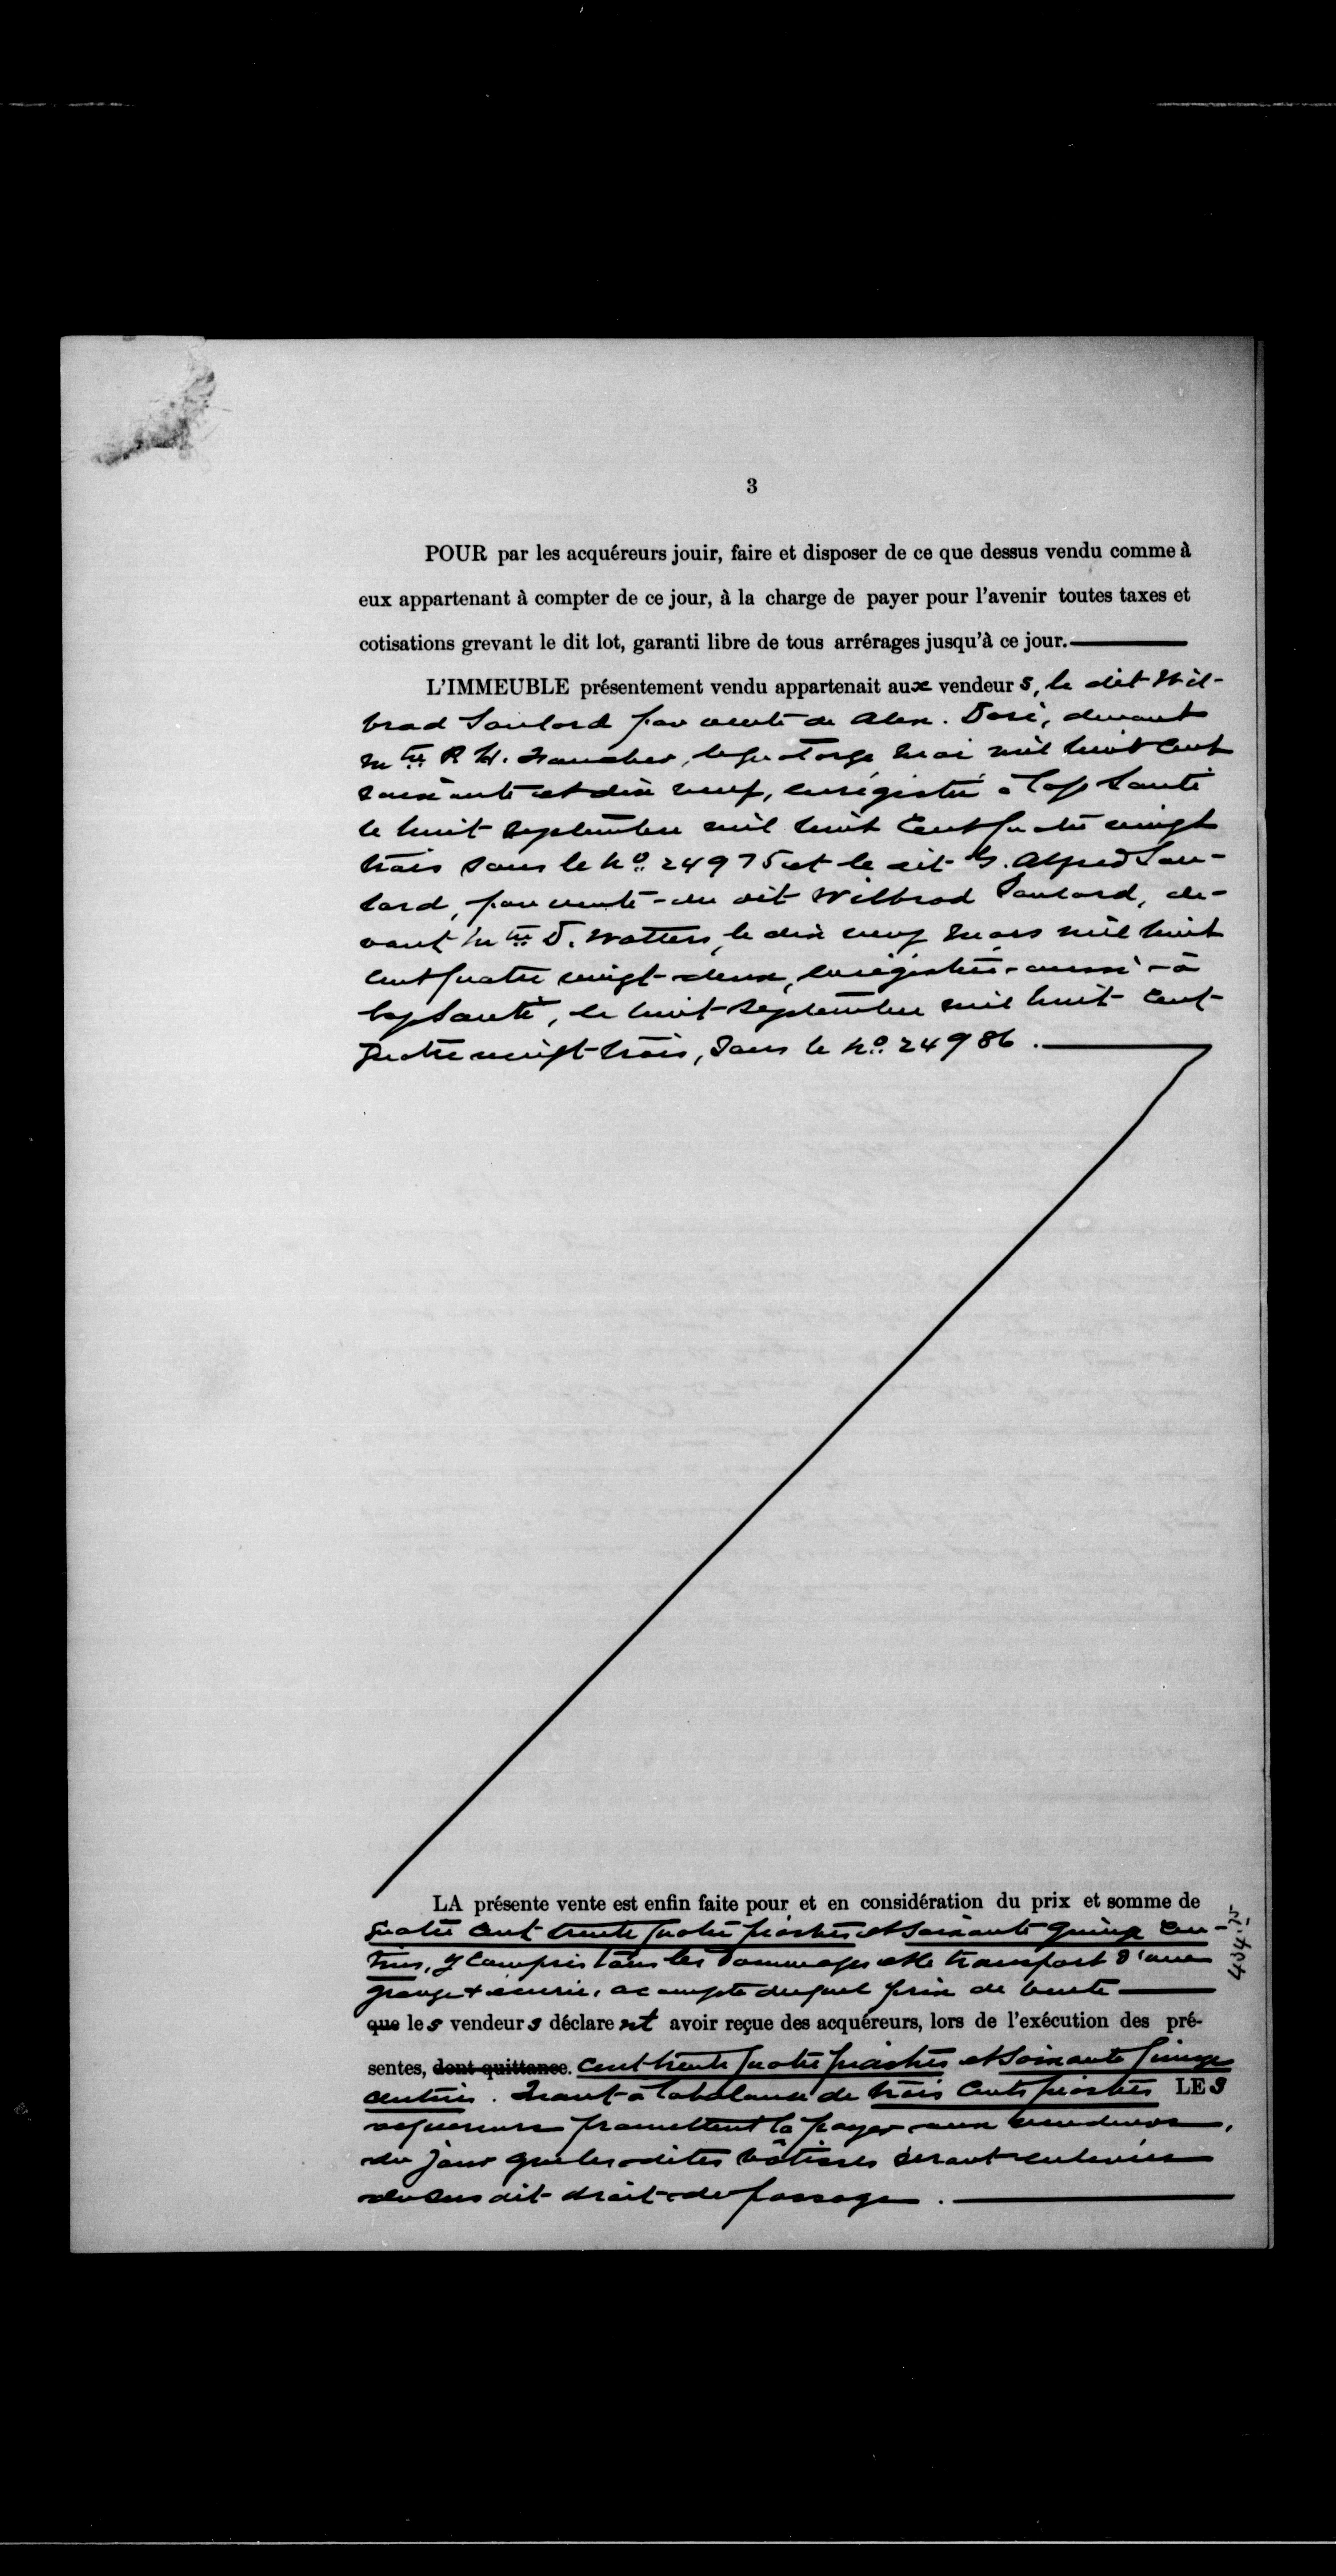 3
POUR par les acquéreurs jouir, faire et disposer de ce que dessus vendu comme à
eux appartenant à compter de ce jour, à la charge de payer pour l'avenir toutes taxes et
cotisations grevant le dit lot, garanti libre de tous arrérages jusqu'à ce jour.
L'IMMEUBLE présentement vendu appartenait aux vendeurs, le dit Wil-
brod Soulard par vente de Alex. Doré, devant
Mtre R H. Faucher, le quatorze mai mil huit cent
soixante et dix neuf, enrégistré à Cap Santé
le huit septembre mil huit cent quatre vingt
trois sous le No. 24975 et le dit G. Alfred Sou-
lard, par vente du dit Wilbrod Soulard, de-
vant Mtre D. Watters, le dix neuf mars mil huit
cent quatre vingt-deux, enrégistrée aussi à
Cap Santé, le huit septembre mil huit cent
quatre vingt-trois, sous le No. 24986.
LA présente vente est enfin faite pour et en considération du prix et somme de
quatre cent trente quatre piastres et soixante quinze cen-
tins, y compris tous les dommages et le transport d'une
grange & écurie, acompte duquel prix de vente
que les vendeurs déclarent avoir reçue des acquéreurs, lors de l'exécution des pré-
sentes, dont quittance. cent trente quatre piastres et soixante quinze
centins. Quant à la balance de trois cents piastres LES
acquéreurs promettent la payer aux vendeurs,
du jour que les dites bâtisses seront enlevées
du sus dit droit de passage.
434.75